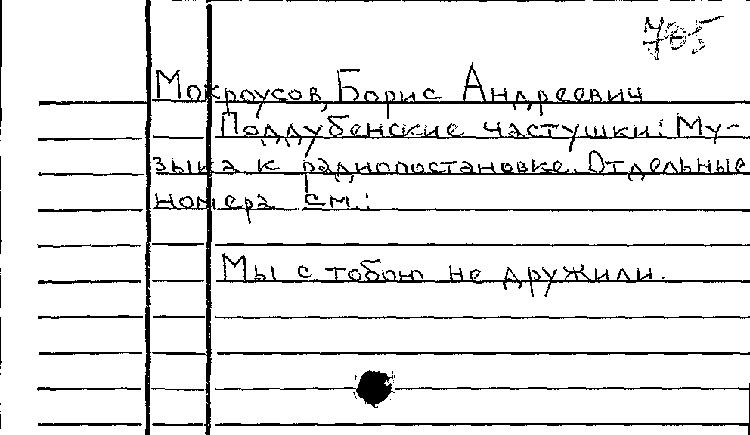 705
Мокроусов, Борис Андреевич
Поддубенские частушки: Му-
зыка к радиопостановке. Отдельные
номера см.:
Мы с тобою не дружили.